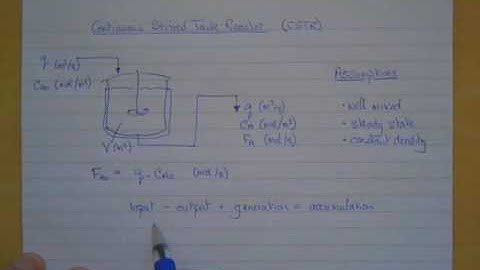 Continuous Stirred Tank Reactor (CSTR)
q (m³/s)
CA0 (mol/m³)
V (m³)
q (m³/s)
CA (mol/m³)
FA (mol/s)
Assumptions
• well mixed
• steady state
• constant density
FA0 = q · CA0 (mol/s)
Input - output + generation = accumulation